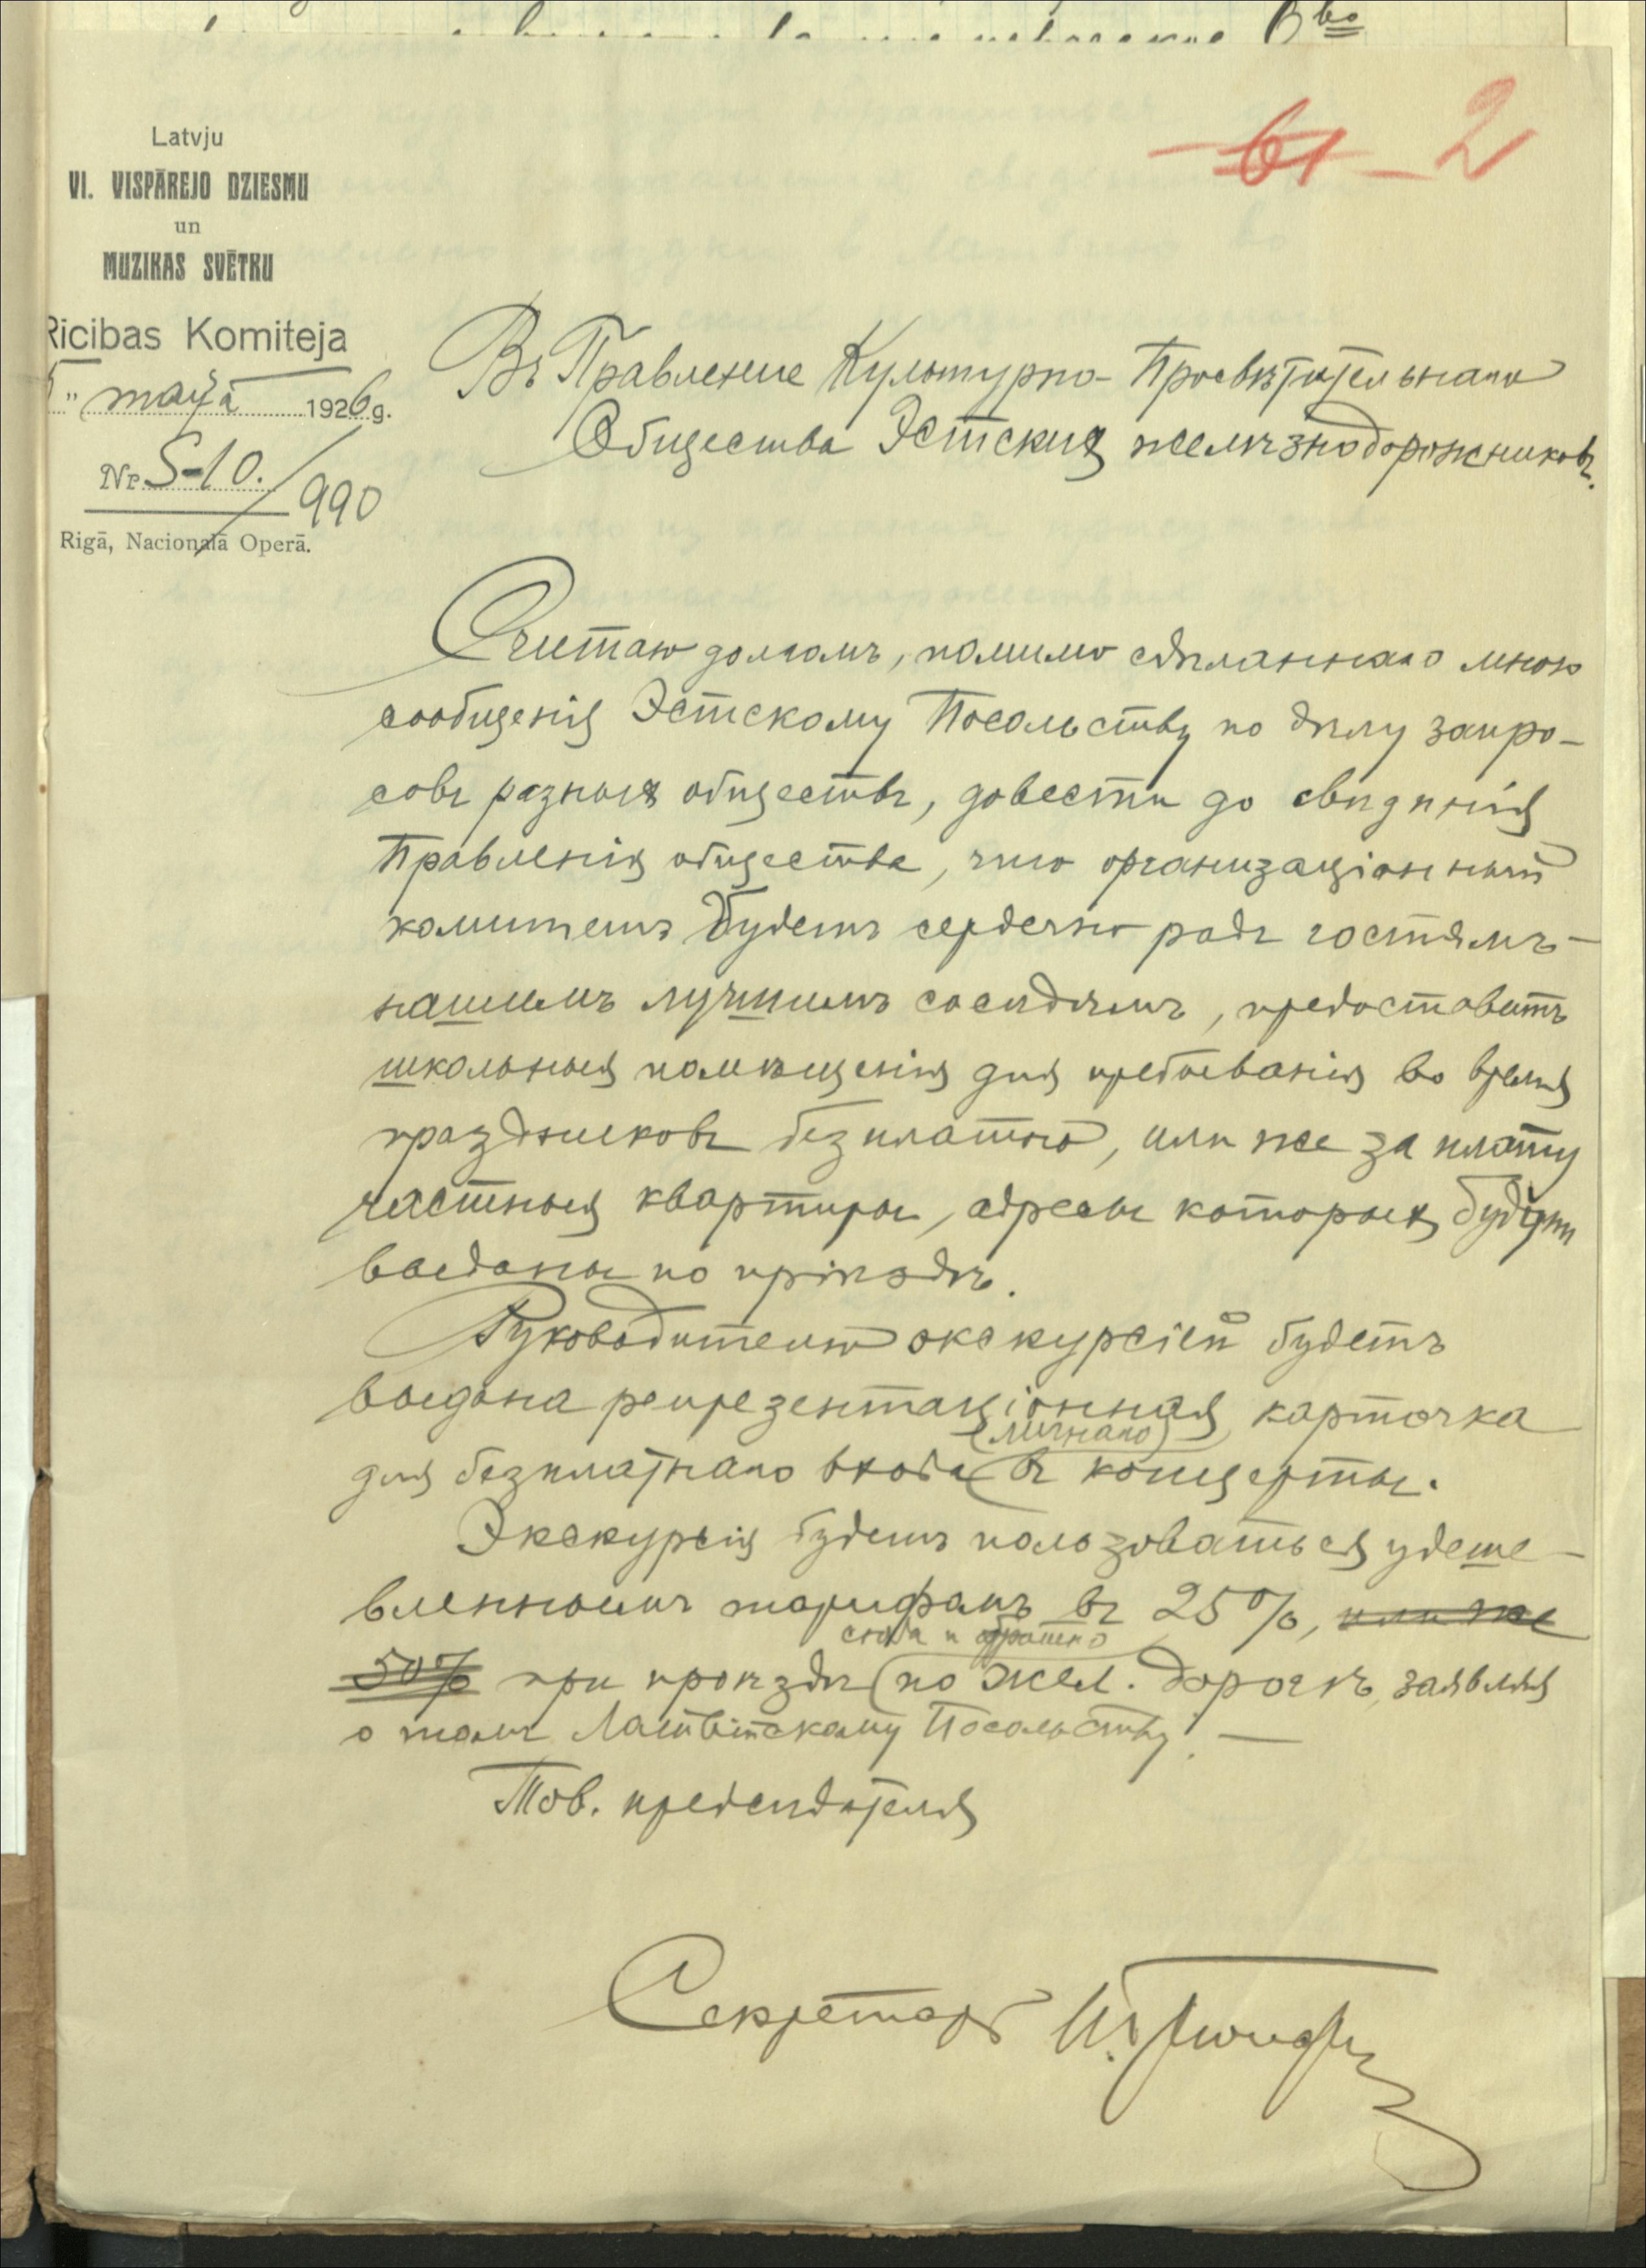 61 2
Latvju
VI. VISPĀREJO DZIESMU
un
MUZIKAS SVĒTKU
Rīcibas Komiteja
" maijā 1926 g.
Nr. S-10./990
Rigā, Nacionalā Operā.
Въ Правленіе Культурно-Просвѣтительнаго
Общества Эстскихъ желѣзнодорожниковъ.
Считаю долгомъ, помимо сдѣланнаго мною
сообщенія Эстскому Посольству по дѣлу запро-
совъ разныхъ обществъ, довести до свѣдѣнія
Правленія общества, что организаціонный
комитетъ будетъ сердечно радъ гостямъ-
нашимъ лучшимъ сосѣдямъ, предоставитъ
школьныя помѣщенія для пребыванія во время
праздниковъ безплатно, или же за плату
частныя квартиры, адресы которыхъ будутъ
выданы по пріѣздѣ.
Руководителю экскурсіей будетъ
выдана репрезентаціонная карточка
для безплатнаго входа (личнаго) въ концерты.
Экскурсія будетъ пользоваться удеше-
вленнымъ тарифамъ въ 25%, или же
50% при проѣздѣ (сюда и обратно) по жел. дорогѣ, заявляя
о томъ Латвійскому Посольству. —
Тов. предсѣдателя
Секретарь